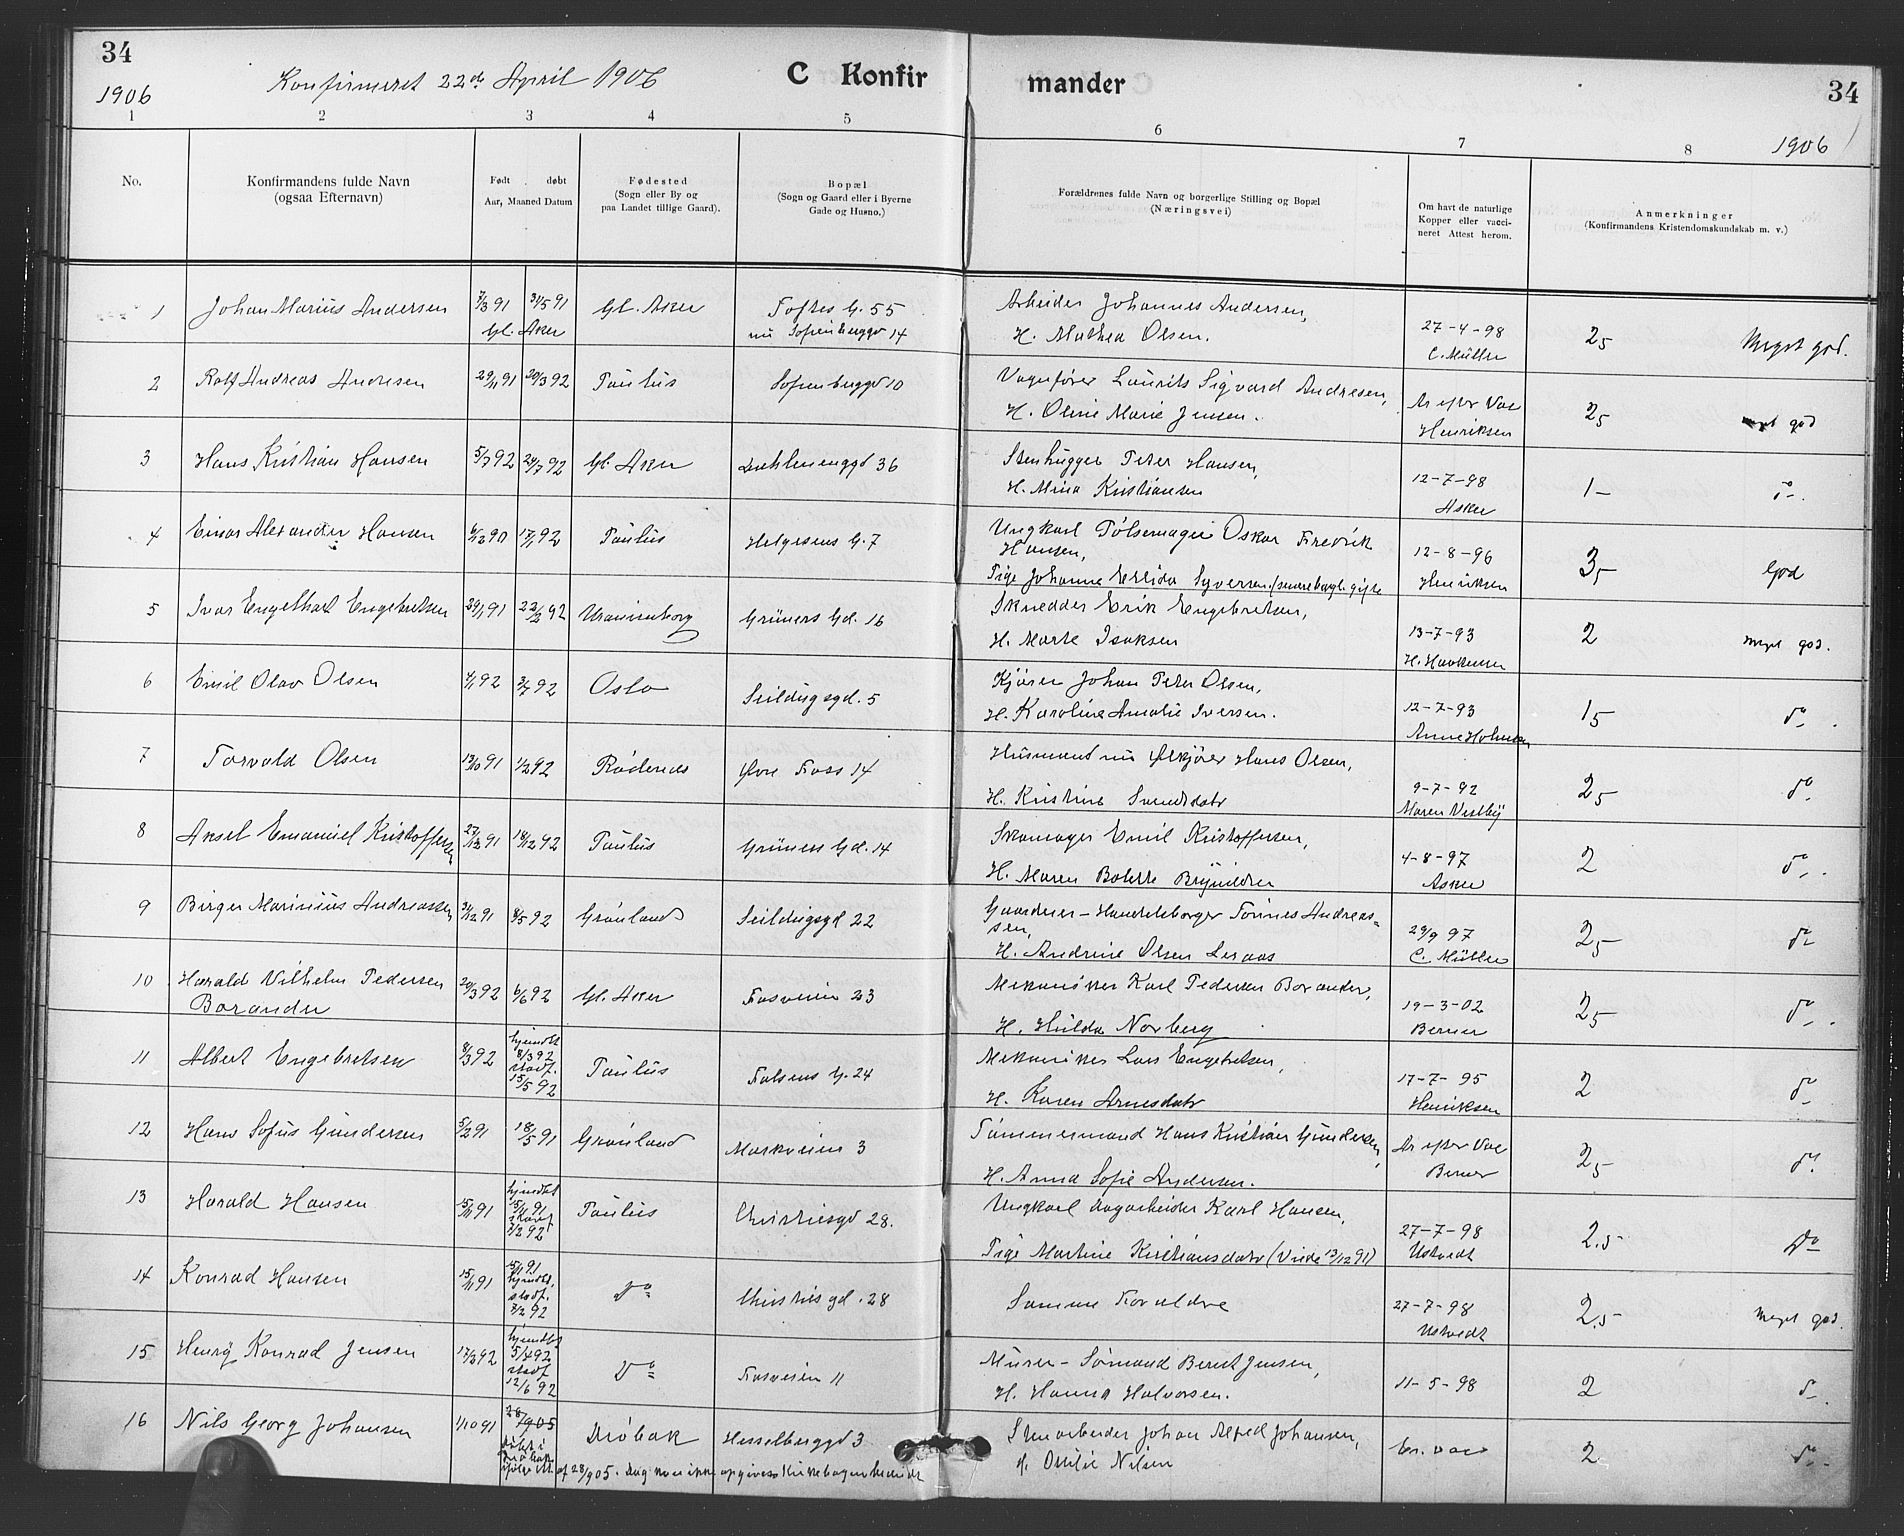 34
1906
Konfirmeret 22de April 1906
C Konfir
mander
34
1906
1 2 3 4 5 6 7 8
No.
Konfirmandens fulde Navn
(ogsaa Efternavn)
Født døbt
Aar, Maaned Datum
Fødested
(Sogn eller By og
paa Landet tillige Gaard).
Bopæl
(Sogn og Gaard eller i Byerne
Gade og Husno.)
Forældrenes fulde Navn og borgerlige Stilling og Bopæl
(Næringsvei)
Om havt de naturlige
Kopper eller vacci-
neret Attest herom.
Anmerkninger
(Konfirmandens Kristendomskundskab m. v.)
1 Johan Marius Andersen 7/3 91 31/5 91 Gl. Aker Toftes G. 55
Gl. Aker nu Sofienberggd 14
Arbeider Johannes Andersen,
H. Mathea Olsen.
27-4-98
C. Müller
25 Meget god.
2 Rolf Andreas Andresen 29/11 91 20/3 92 Paulus Sofienberggd 10
Vognfører Laurits Sigvard Andresen,
H. Oline Marie Jensen.
Ar efter Vac
Henriksen
25 meget god
3 Hans Kristian Hansen 5/7 92 24/7 92 Gl. Aker Dæhlenenggd 36
Stenhugger Peter Hansen,
H. Mina Kristiansen
12-7-98
Asker
1- do.
4 Einar Alexander Hansen 6/12 90 17/1 92 Paulus Helgesens G. 7
Ungkarl Pølsemager Oskar Fredrik
Hansen,
Pige Johanne Ellida Syversen (senere borgl. gifte
12-8-96
Henriksen
3,- God
5 Ivar Engelhart Engebretsen 29/1 91 22/2 92 Uranienborg Grüners Gd. 16
Skredder Erik Engebretsen,
H. Marte Isaksen
13-7-93
H. Haakensen
2 meget god.
6 Emil Olav Olsen 4/1 92 3/7 92 Oslo Seildugsgd. 5
Kjører Johan Peter Olsen,
H. Karoline Amalie Iversen.
12-7-93
Anne Holmsen
15 do.
7 Torvald Olsen 13/10 91 1/2 92 Rødenes Øvre Foss 14
Husmand nu Ølkjører Hans Olsen,
H. Kristine Svendsdatr
9-7-92
Maren Vestby
25 do
8 Aksel Emanuel Kristoffersen 27/12 91 18/12 92 Paulus Grüners Gd. 14
Skomager Emil Kristoffersen,
H. Maren Bolette Brynildsen
4-8-97
Asker
2 do.
9 Birger Marinius Andreassen 31/12 91 8/5 92 Grønland Seildugsgd 22
Gaardeier-Handelsborger Tønnes Andreas-
sen,
H. Andrine Olsen Leraas
29/9 97
C. Müller
25 do
10 Harald Vilhelm Pedersen 20/3 92 6/6 92 Gl. Aker Fossveien 23
Borander
Mekaniker Karl Pedersen Borander,
H. Hulda Norberg
19-3-02
Berner
25 do.
11 Albert Engebretsen 8/3 92 hjemdbt 8/3 92 stadf. 15/5 92 Paulus Falsens G. 24
Mekaniker Lars Engebretsen,
H. Karen Arnesdatr
17-7-95
Henriksen
2 do
12 Hans Sofus Gundersen 5/2 91 18/5 91 Grønland Markveien 3
Tømmermand Hans Kristian Gundersen,
H. Anna Sofie Andersen.
Ar efter Vac
Berner
25 do.
13 Harald Hansen 15/11 91 hjemdbt 15/11 91 stadf 7/2 92 Paulus Christiesgd 28.
Ungkarl dagarbeider Karl Hansen,
Pige Martine Kristiansdatr (Viede 13/12 91)
27-7-98
Ustvedt
2.5 Do
14 Konrad Hansen 15/11 91 15/11 91 hjemdbt, stadf. 7/2 92 Do Christiesgd. 28
Samme Forældre
27-7-98
Ustvedt
2.5 meget god.
15 Henry Konrad Jensen 17/3 92 hjemdbt 5/4 92 stadf 12/6 92 Do Fossveien 11
Murer-Sømand Bernt Jensen,
H. Hanna Halvorsen.
11-5-98
2 do
16 Nils Georg Johansen 1/10 91 28/9 05 Drøbak Hesselberggd 3
Stenarbeider Johan Alfred Johansen,
H. Otilie Nilsen
Er. vac
2 do.
døbt i
Drøbak
ifølge att. af 28/9 05. Dag kan ikke opgives Kirkebogen brændt